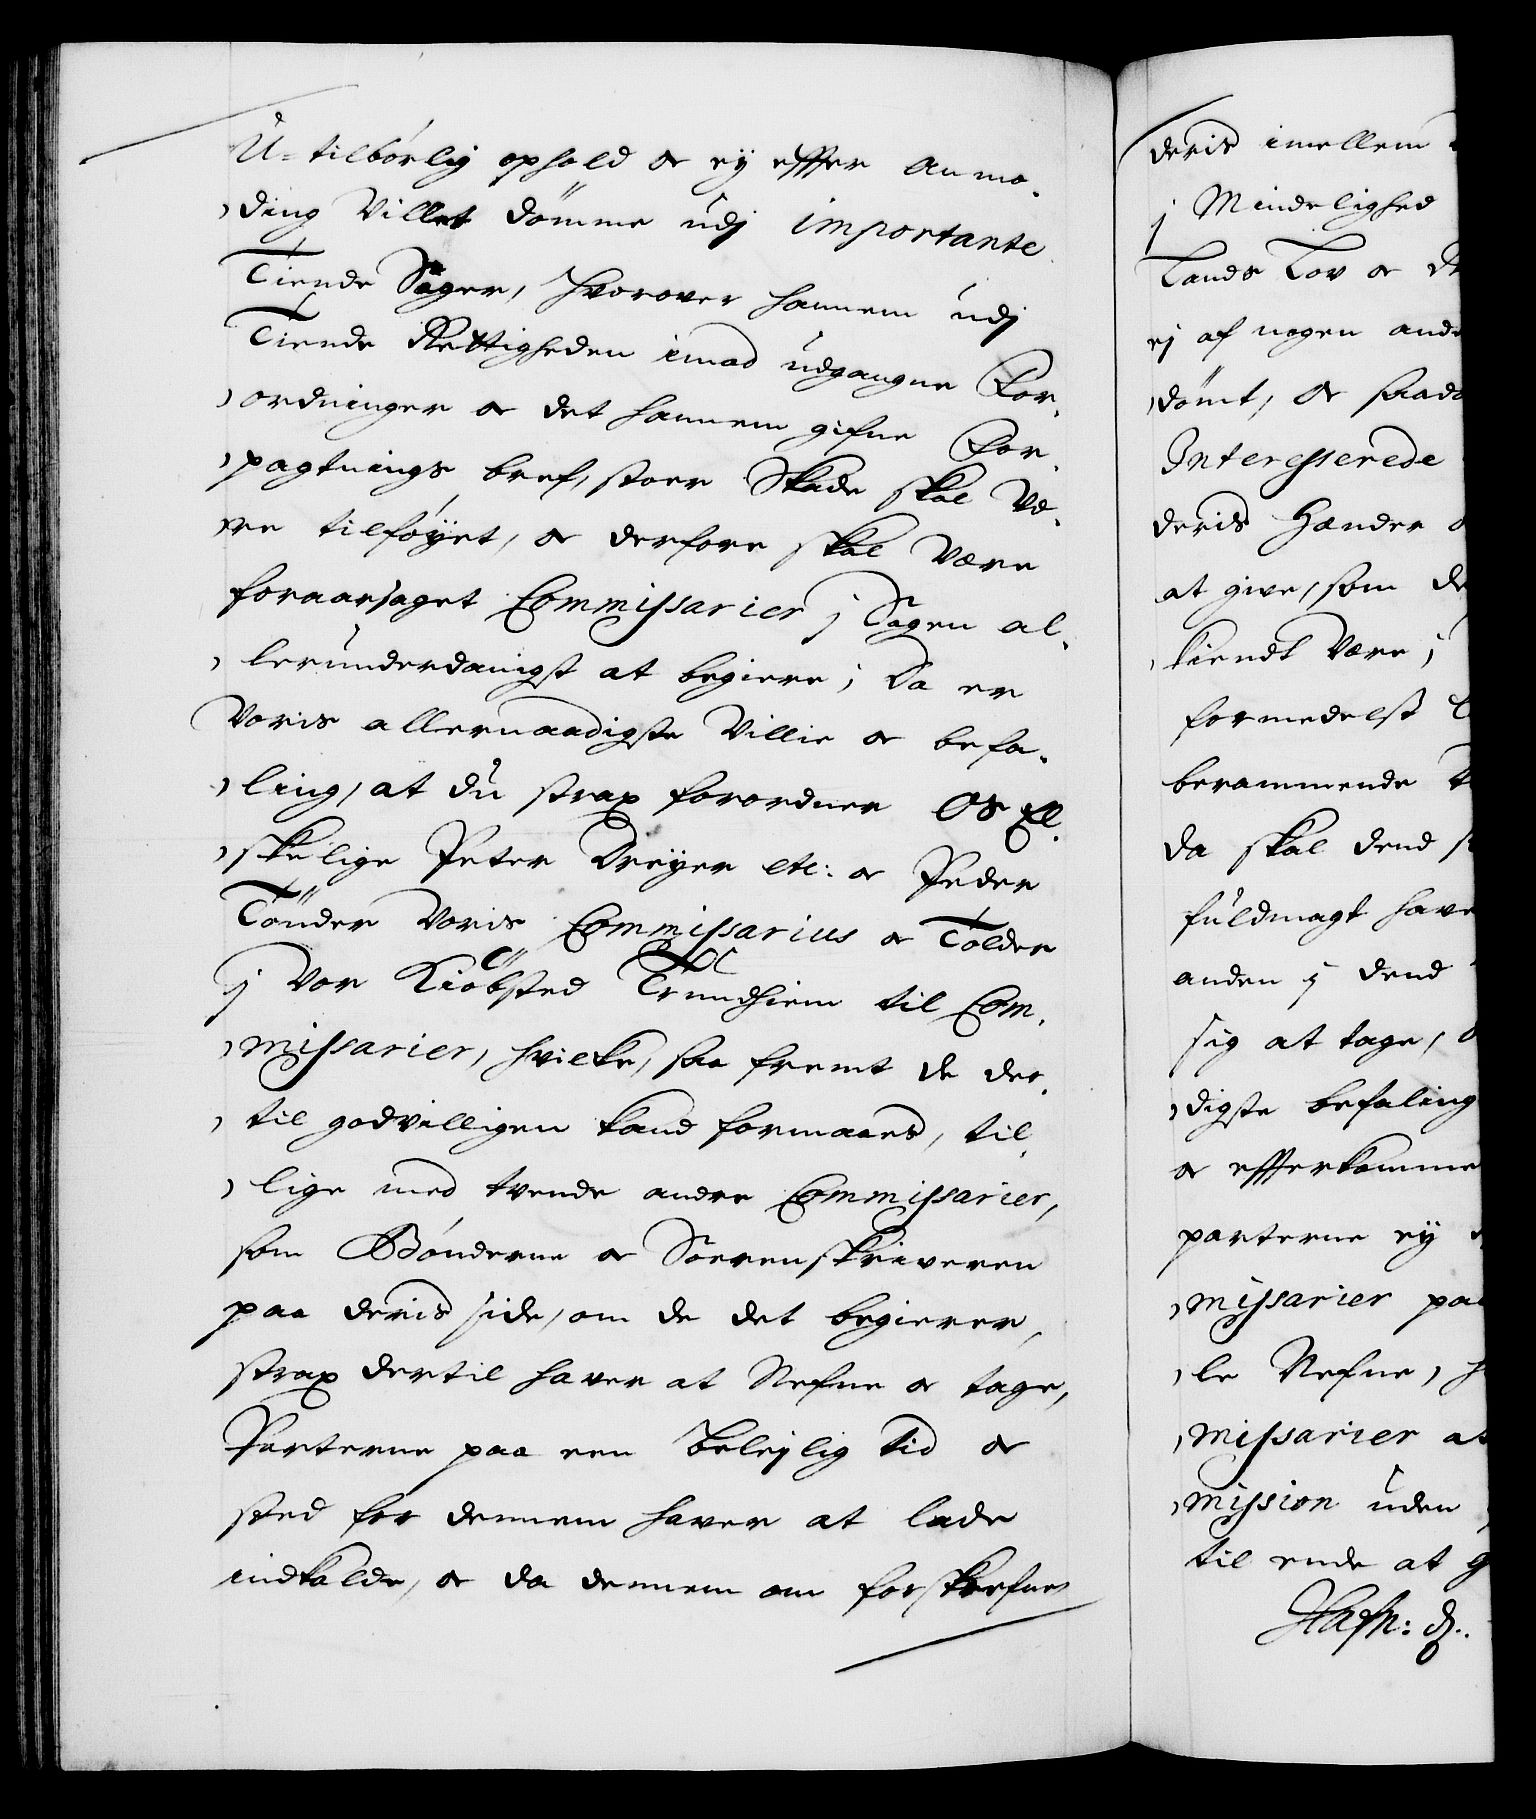 U-tilbörlig ophold oc ej effter anmo-
ding villet dömme udj importante
Tiende Sager, hvorover hannem udj
Tiende Rettigheden imod udgangne For-
ordninger oc det hannem gifne For-
pagtnings bref, stoer Skade skal Væ-
re tilföyet, oc derfore skal være
foraarsaget Commissarier j Sagen al-
lerunderdanigst at begiere; Da er
Voris allernaadigste Villie oc befa-
ling, at du strax forordner Os El-
skelige Peter Dreyer etc: oc Peder
Tönder Voris Commissarius oc Tolder
j Vor Kiöbsted Trundhiem til Com-
missarier, hvilke, saa fremt de der-
til godvilligen kand formaaes, til-
lige med tvende andre Commissarier,
som Bönderne oc Sorenskriveren
paa deris side, om de det begierer,
strax dertil haver at Nefne oc tage,
Parterne paa een belejlig tid oc
sted for dennem haver at lade
indkalde, oc da dennem om forskrefne
deris imellem
j Mindelighed
Lands Lov oc
ej af nogen
dömt, Oc saada
Interesserede
deris Hænder
at give, som de
kiendt være;
formedelst
berammende
da skal dend
fuldmagt have
anden j dend
sig at tage,
digste befaling
oc effterkomme
parterne ej
missarier paa
le Nefne,
missarier at
mission uden
til ende at
Hafn: d.